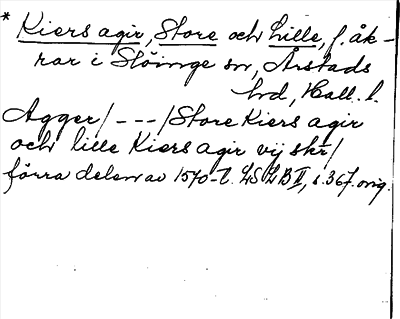 * Kiers agir, Store och Lille, f. åk-
rar i Slöinge sn, Årstads
hd, Hall. l.
Agger/ - - - /Store Kiers agir
och lille Kiers agir vij skr/
förra delen av 1570-t. LSLB II, s. 367. orig.